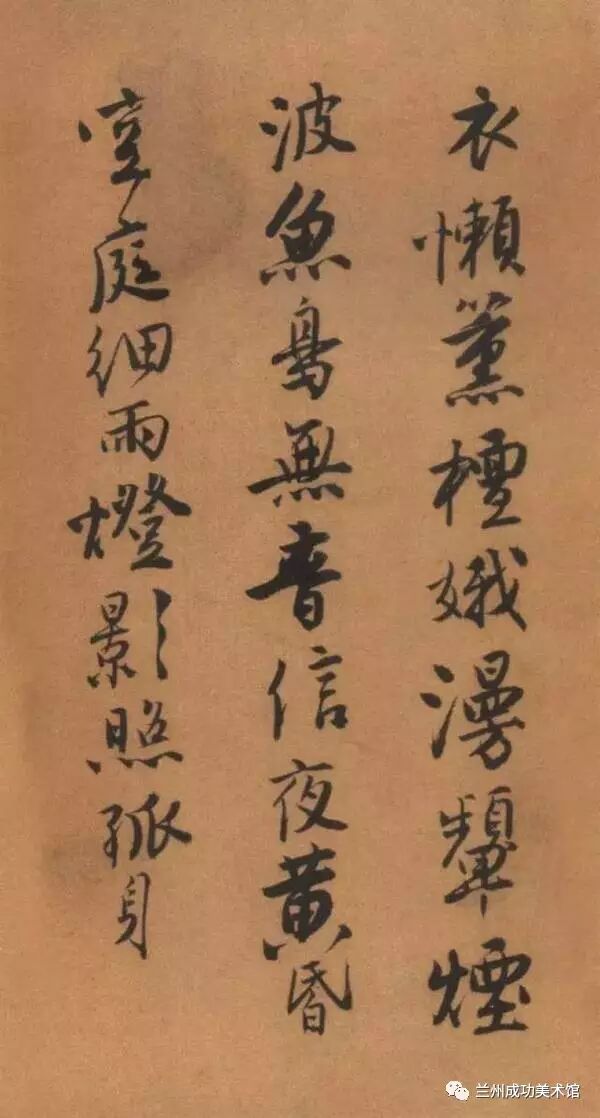 衣懶薰檀娥漫顰煙
波魚鳥無音信夜黃昏
空庭細雨燈影照孤身
兰州成功美术馆